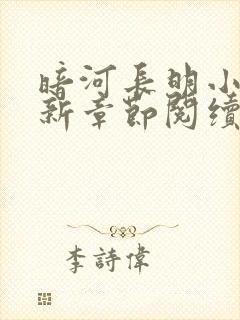 暗河長明小
新章節閱續
李詩偉